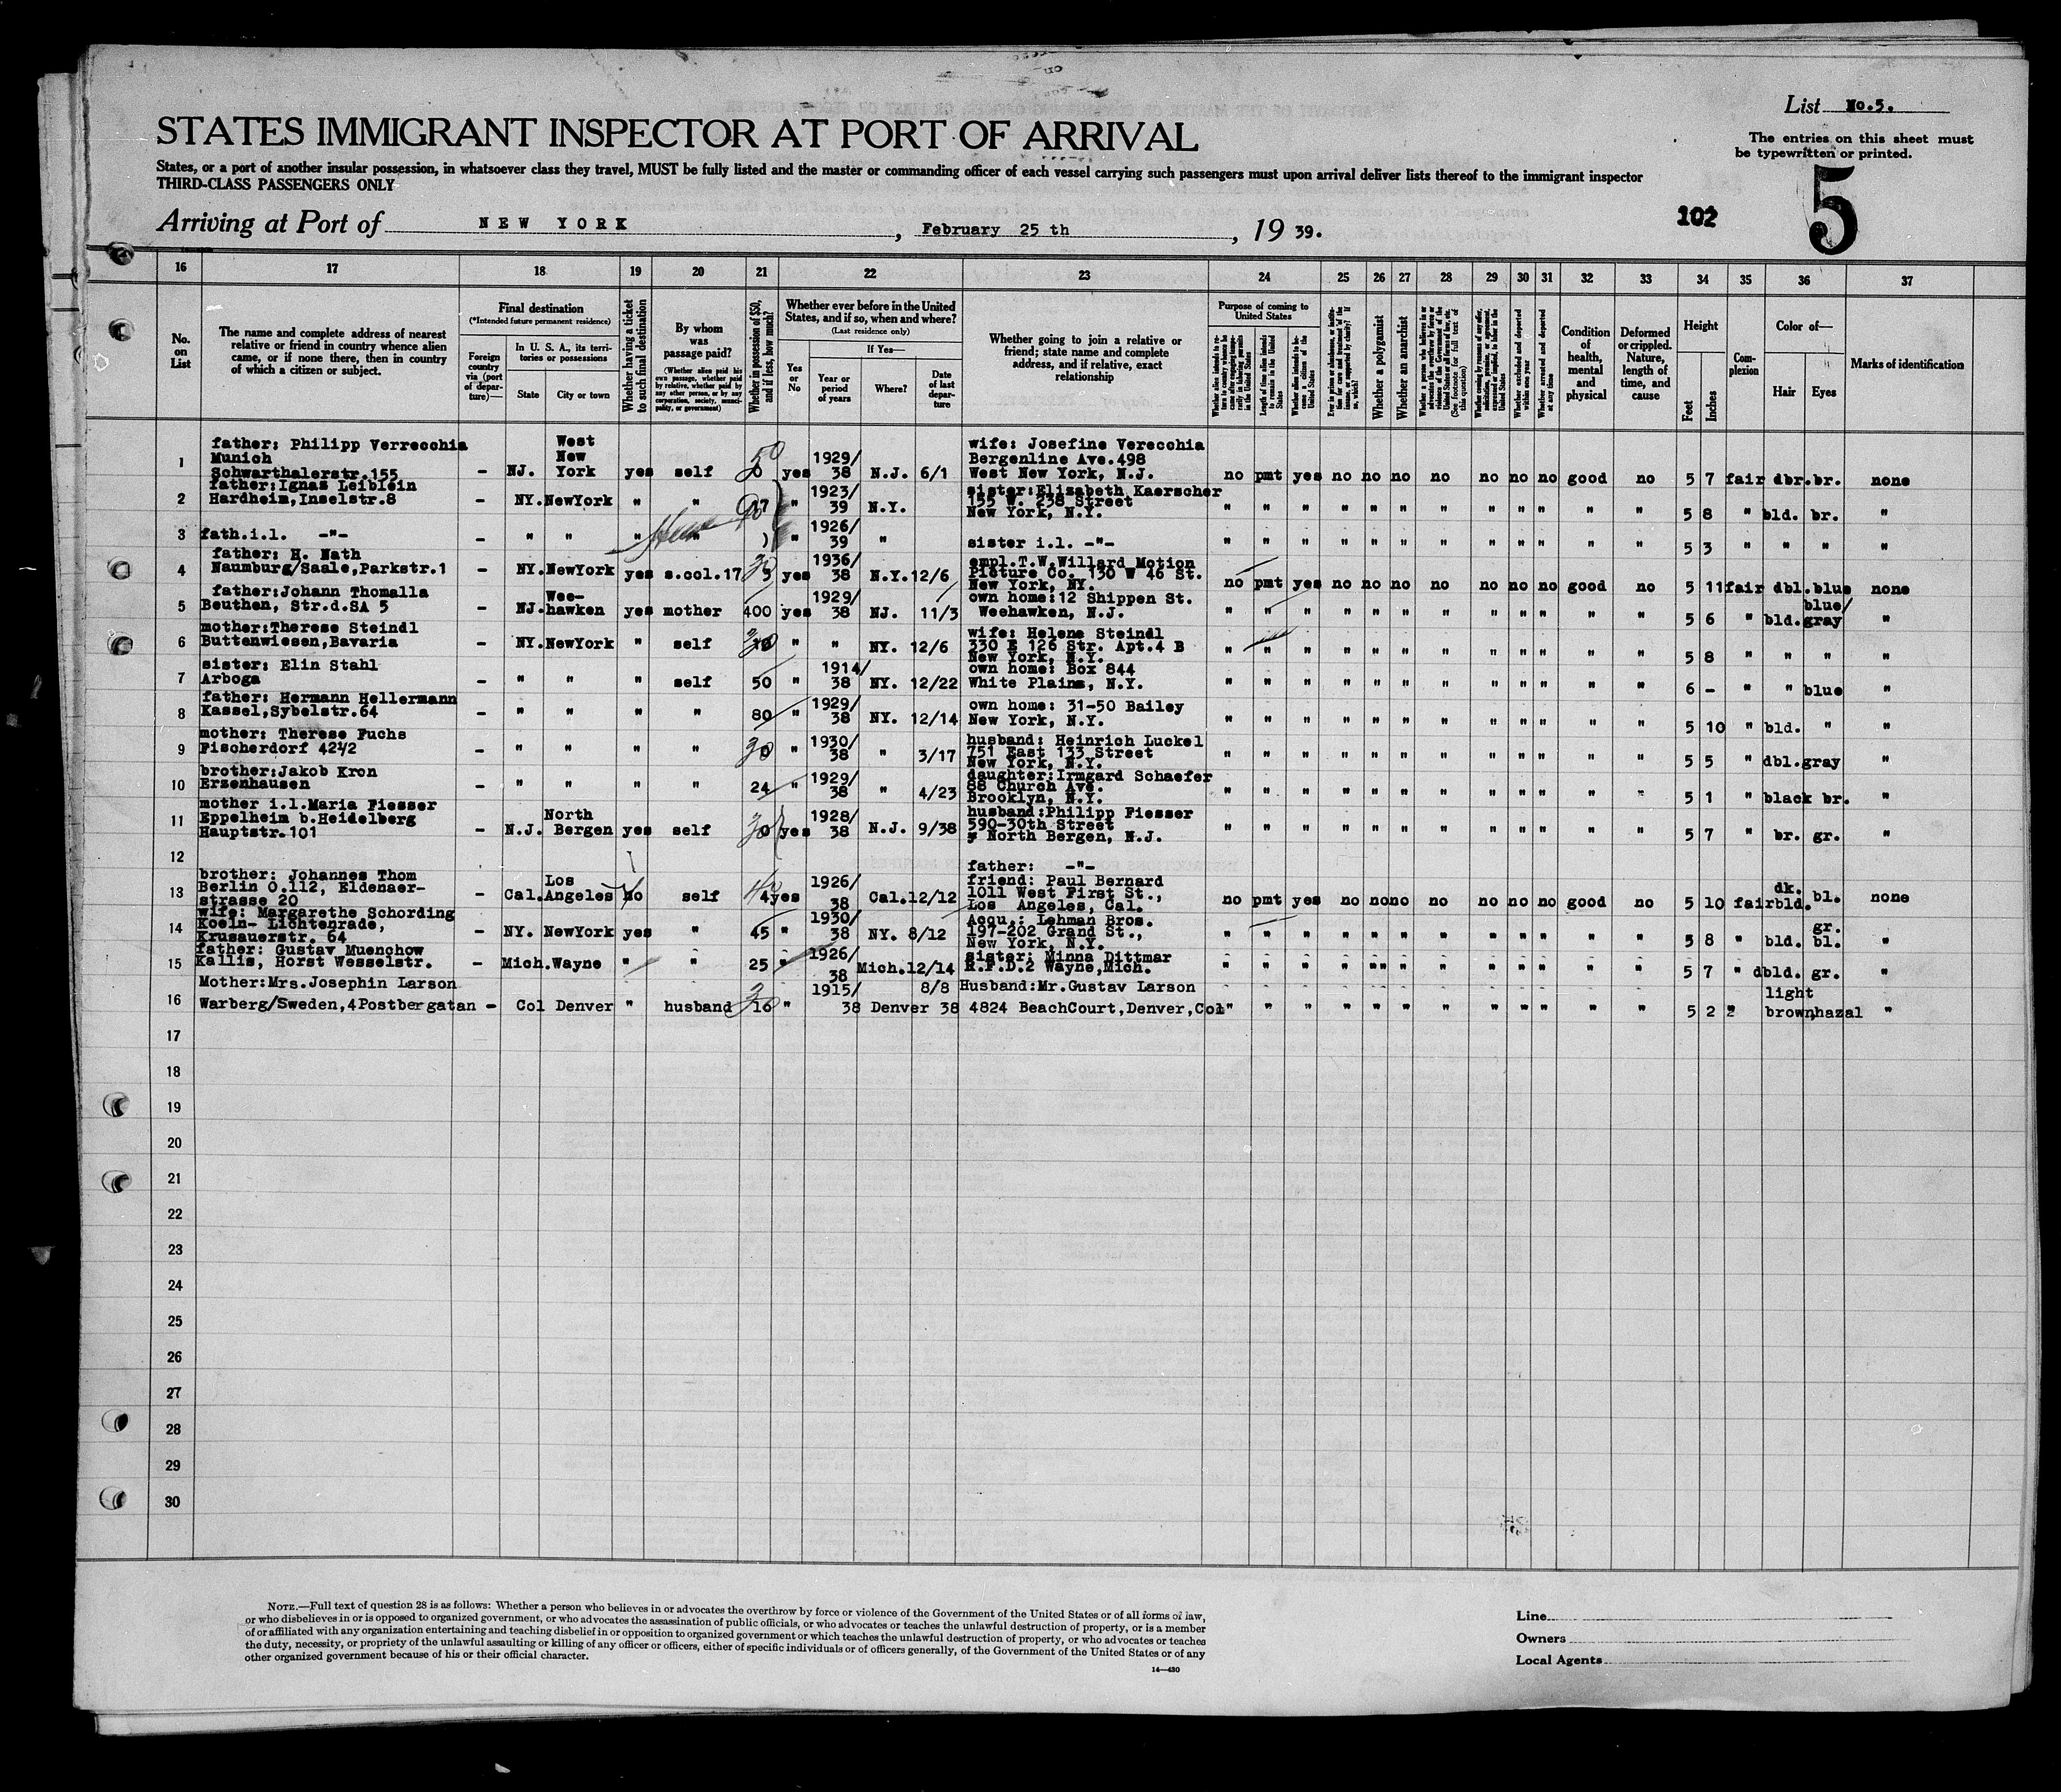 List No.5.
STATES IMMIGRANT INSPECTOR AT PORT OF ARRIVAL
The entries on this sheet must
be typewritten or printed.
States, or a port of another insular possession, in whatsoever class they travel, MUST be fully listed and the master or commanding officer of each vessel carrying such passengers must upon arrival deliver lists thereof to the immigrant inspector
THIRD-CLASS PASSENGERS ONLY
102 5
Arriving at Port of NEW YORK, February 25 th, 19 39.
16 17 18 19 20 21 22 23 24 25 26 27 28 29 30 31 32 33 34 35 36 37
No. on List
The name and complete address of nearest
relative or friend in country whence alien
came, or if none there, then in country
of which a citizen or subject.
Final destination
(*Intended future permanent residence)
Foreign country via (port of departure)—
In U. S. A., its territories or possessions
State City or town
Whether having a ticket to such final destination
By whom was passage paid?
(Whether alien paid his own passage, whether paid by relative, whether paid by any other person, or by any corporation, society, municipality, or government)
Whether in possession of $50, and if less, how much?
Whether ever before in the United States, and if so, when and where?
(Last residence only)
Yes or No
If Yes—
Year or period of years
Where?
Date of last departure
Whether going to join a relative or
friend; state name and complete
address, and if relative, exact
relationship
Purpose of coming to United States
Length of time alien intends to remain in the United States
Whether alien intends to become a citizen of the United States
Whether a polygamist
Whether an anarchist
Whether excluded and deported within one year
Whether arrested and deported at any time
Condition of health, mental and physical
Deformed or crippled. Nature, length of time, and cause
Height
Feet Inches
Complexion
Color of—
Hair Eyes
Marks of identification
1 father: Philipp Verrecchia Munich Schwarthalerstr.155 - NJ. West New York yes self 50 yes 1929/38 N.J. 6/1 wife: Josefine Verecchia Bergenline Ave.498 West New York, N.J. no pmt yes no no no no no no no good no 5 7 fair dbr. br. none
2 father:Ignas Leiblein Hardheim,Inselstr.8 - NY. NewYork " " " 1923/39 N.Y. sister:Elisabeth Kaerscher 155 W. 238 Street New York, N.Y. " " " " " " " " " " " " 5 8 " bld. br. "
3 fath.i.l. -"- - " " " " 1926/39 " sister i.l. -"- " " " " " " " " " " " " 5 3 " " " "
4 father: H. Nath Naumburg/Saale,Parkstr.1 - NY. NewYork yes s.col.17 yes 1936/38 N.Y. 12/6 empl.T.W.Willard Motion Picture Co. 130 W 46 St. New York, NY. no pmt yes no no no no no no no good no 5 11 fair dbl. blue none
5 father:Johann Thomalla Beuthen, Str.d.SA 5 - NJ. Wee-hawken yes mother 400 yes 1929/38 NJ. 11/3 own home:12 Shippen St. Weehawken, N.J. " " " " " " " " " " " " 5 6 " bld. blue/gray "
6 mother:Therese Steindl Buttenwiesen,Bavaria - NY. NewYork " self " " NY. 12/6 wife: Helene Steindl 330 E 126 Str. Apt.4 B New York, N.Y. " " " " " " " " " " " " 5 8 " " " "
7 sister: Elin Stahl Arboga - " " " self 50 " 1914/38 NY. 12/22 own home: Box 844 White Plains, N.Y. " " " " " " " " " " " " 6 - " " blue "
8 father: Hermann Hellermann Kassel,Sybelstr.64 - " " " " 80 " 1929/38 NY. 12/14 own home: 31-50 Bailey New York, N.Y. " " " " " " " " " " " " 5 10 " bld. " "
9 mother: Therese Fuchs Fischerdorf 42½ - " " " " 30 " 1930/38 " 3/17 husband: Heinrich Luckel 751 East 133 Street New York, N.Y. " " " " " " " " " " " " 5 5 " dbl. gray "
10 brother:Jakob Kron Erzenhausen - " " " " 24 " 1929/38 " 4/23 daughter:Irmgard Schaefer 88 Church Ave. Brooklyn, N.Y. " " " " " " " " " " " " 5 1 " black br. "
11 mother i.l.Maria Fiesser Eppelheim b.Heidelberg Hauptstr.101 - N.J. North Bergen yes self 30 yes 1928/38 N.J. 9/38 husband:Philipp Fiesser 590-30th Street North Bergen, N.J. " " " " " " " " " " " " 5 7 " br. gr. "
12 father: -"-
13 brother: Johannes Thom Berlin O.112, Eldenaer-strasse 20 - Cal. Los Angeles no self yes 1926/38 Cal. 12/12 friend: Paul Bernard 1011 West First St., Los Angeles, Cal. no pmt yes no no no no no no no good no 5 10 fair dk. bld. bl. none
14 wife: Margarethe Schording Koeln- Lichtenrade, Krusauerstr. 64 - NY. NewYork yes " 45 " 1930/38 NY. 8/12 Acqu.: Lehman Bros. 197-202 Grand St., New York, N.Y. " " " " " " " " " " " " 5 8 " bld. gr. bl. "
15 father: Gustav Muenchow Kallis, Horst Wesselstr. - Mich. Wayne " " 25 " 1926/38 Mich. 12/14 sister: Minna Dittmar R.F.D.2 Wayne,Mich. " " " " " " " " " " " " 5 7 " dbld. gr. "
16 Mother:Mrs.Josephin Larson Warberg/Sweden,4Postbergatan - Col Denver " husband " 1915/38 Denver 8/8 38 Husband:Mr.Gustav Larson 4824 BeachCourt,Denver,Col " " " " " " " " " " " " 5 2 " light brown, hazal "
17
18
19
20
21
22
23
24
25
26
27
28
29
30
NOTE.—Full text of question 28 is as follows: Whether a person who believes in or advocates the overthrow by force or violence of the Government of the United States or of all forms of law,
or who disbelieves in or is opposed to organized government, or who advocates the assassination of public officials, or who advocates or teaches the unlawful destruction of property, or is a member
of or affiliated with any organization entertaining and teaching disbelief in or opposition to organized government or which teaches the unlawful destruction of property, or who advocates or teaches
the duty, necessity, or propriety of the unlawful assaulting or killing of any officer or officers, either of specific individuals or of officers generally, of the Government of the United States or of any
other organized government because of his or their official character.
14—430
Line
Owners
Local Agents